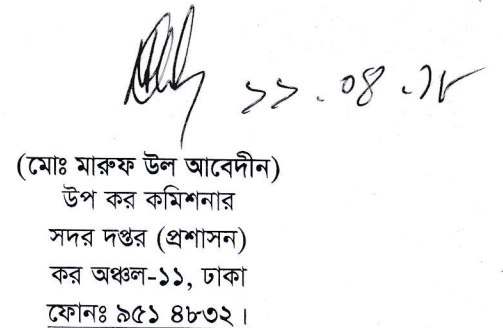 ১১.০৪.১৮
(মোঃ মারুফ উল আবেদীন)
উপ কর কমিশনার
সদর দপ্তর (প্রশাসন)
কর অঞ্চল-১১, ঢাকা
ফোনঃ ৯৫১ ৪৮৩২।